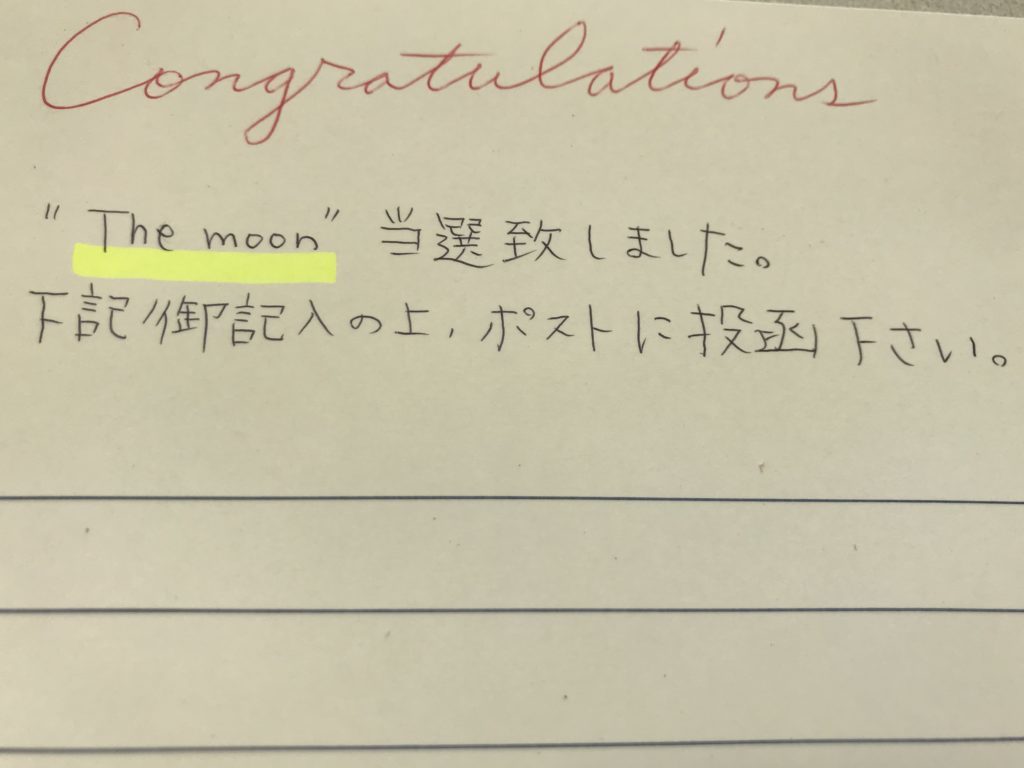 Congratulations
"The moon" 当選致しました。
下記御記入の上,ポストに投函下さい。